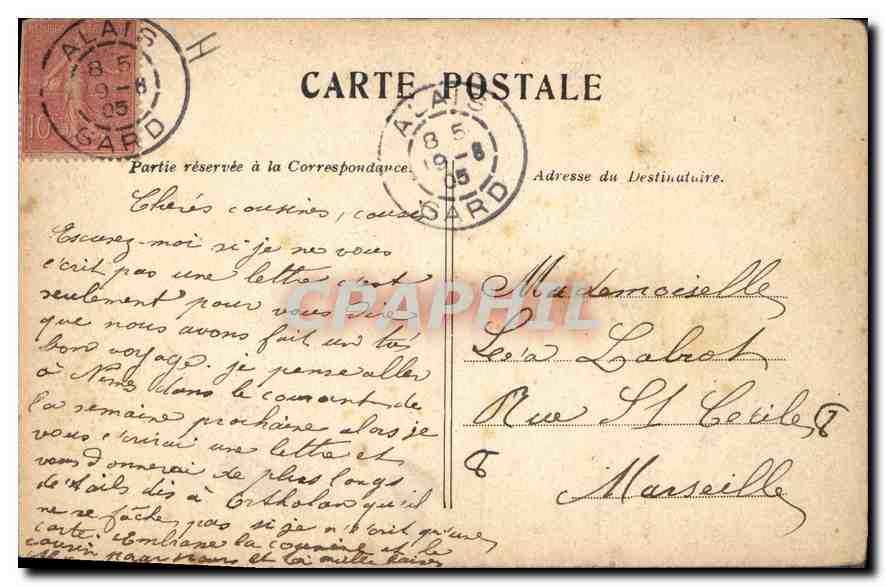 ALAIS
8 5
9-8
05
GARD
10
H
CARTE POSTALE
ALAIS
8 5
19-8
05
GARD
Partie réservée à la Correspondance.
Adresse du Destinataire.
Cherés cousines, cousin
Escusez-moi si je ne vous
écrit pas une lettre c'est
seulement pour vous dire
que nous avons fait un trés
bon voyage. je pense aller
à Nimes dans le courant de
la semaine prochaine alors je
vous écrirai une lettre et
vous donnerai de plus longs
détails dis à Ortholan qu'il
ne se fâche pas si je n'écrit qu'une
carte. Embrasse la cousine et le
cousin pour nous et toi mille baisers
Mademoiselle
Léa Labrot
Rue St Cecile
8
8
Marseille
CPAPHIL